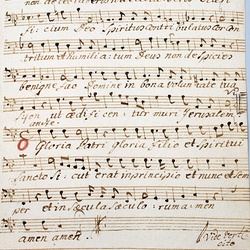 non delectaberis
ficium Deo Spiritus contribulatus cor con
tritum et humilia: tum Deus non despicies
benigne fac Domine in bona voluntate tua
Syon, ut ædi fi cen: tur muri Jerusalem
Gloria Patri gloria filio et spiritui
Sancto si: cut erat in principio et nunc et sem
per et in sæcula sæculo: rum a: men
amen amen.